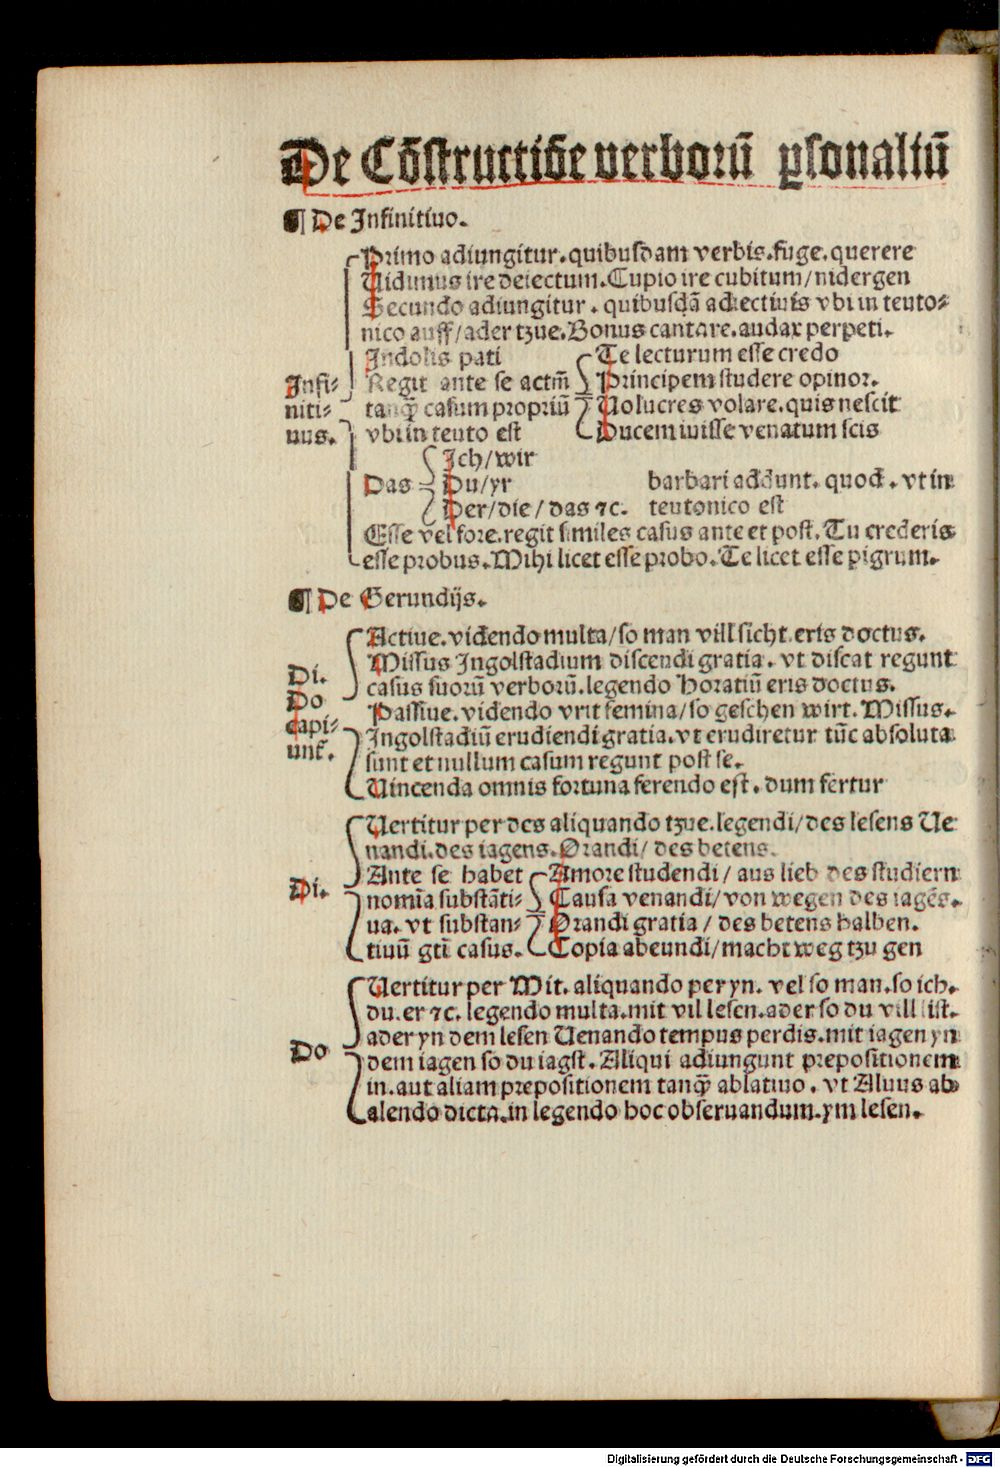 De Cōstructiōe verborū ꝑsonaliū
¶ De Infinitiuo.
Primo adiungitur. quibusdam verbis. fuge. querere
Uidimus ire deiectum. Cupio ire cubitum/nidergen
Secundo adiungitur. quibusdā adiectiuis vbi in teuto-
nico auff/ader tzue. Bonus cantare. audax perpeti.
Indolis pati
Regit ante se actm̄
tanꝙ̄ casum propriū
vbi in teuto est
Te lecturum esse credo
Principem studere opinor.
Uolucres volare. quis nescit
Ducem iuisse venatum scis
Infi-
niti-
uus.
Das
Ich/wir
Du/yr
Der/die/das ⁊c.
barbari addunt. quod. vt in
teutonico est
Esse vel fore. regit similes casus ante et post. Tu crederis
esse probus. Mihi licet esse probo. Te licet esse pigrum.
¶ De Gerundijs.
Di.
Do
capi-
unt̄.
Actiue. videndo multa/so man vill sicht. eris doctus.
Missus Ingolstadium discendi gratia. vt discat regunt
casus suorū verborū. legendo Horatiū eris doctus.
Passiue. videndo vrit femina/so geschen wirt. Missus.
Ingolstadiū erudiendi gratia. vt erudiretur tūc absoluta
sunt et nullum casum regunt post se.
Uincenda omnis fortuna ferendo est. dum fertur
Di.
Uertitur per des aliquando tzue. legendi/des lesens Ue
nandi. des iagens. Orandi/ des betens.
Ante se habet
nomīa substāti-
ua. vt substan-
tiuū gtī casus.
Amore studendi/ aus lieb des studiern
Causa venandi/von wegen des iagēs.
Orandi gratia / des betens halben.
Copia abeundi/macht weg tzu gen
Do
Uertitur per Mit. aliquando per yn. vel so man. so ich.
du. er ⁊c. legendo multa. mit vil lesen. ader so du vill list.
ader yn dem lesen Uenando tempus perdis. mit iagen yn
dem iagen so du iagst. Aliqui adiungunt prepositionem
in. aut aliam prepositionem tanꝙ̄ ablatiuo. vt Aluus ab
alendo dicta. in legendo hoc obseruandum. ym lesen.
Digitalisierung gefördert durch die Deutsche Forschungsgemeinschaft - DFG